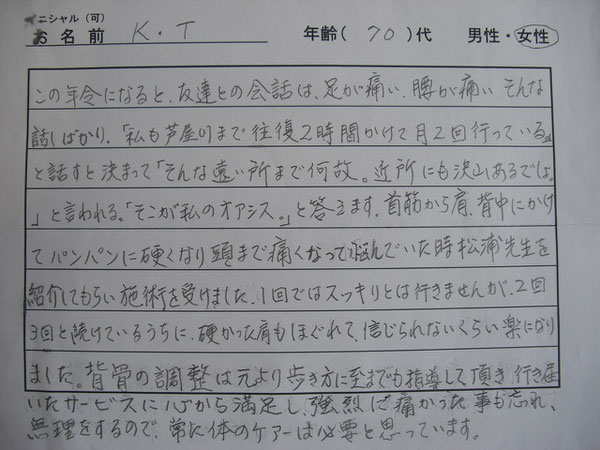 ニシャル(可)
お名前 K・T 年齢(70)代 男性・女性
この年令になると、友達との会話は、足が痛い、腰が痛い そんな
話しばかり、「私も芦屋川まで往復2時間かけて月2回行っている。
と話すと決まって「そんな遠い所まで何故。近所にも沢山あるでしょ。
」と言われる。「そこが私のオアシス。」と答えます。首筋から肩、背中にかけ
てパンパンに硬くなり頭まで痛くなって悩んでいた時松浦先生を
紹介してもらい施術を受けました。1回ではスッキリとは行きませんが、2回
3回と続けているうちに、硬かった肩もほぐれて、信じられないくらい楽になり
ました。背骨の調整は元より歩き方に至までも指導して頂き行き届
いたサービスに心から満足し、強烈に痛かった事も忘れ、
無理をするので、常に体のケアーは必要と思っています。